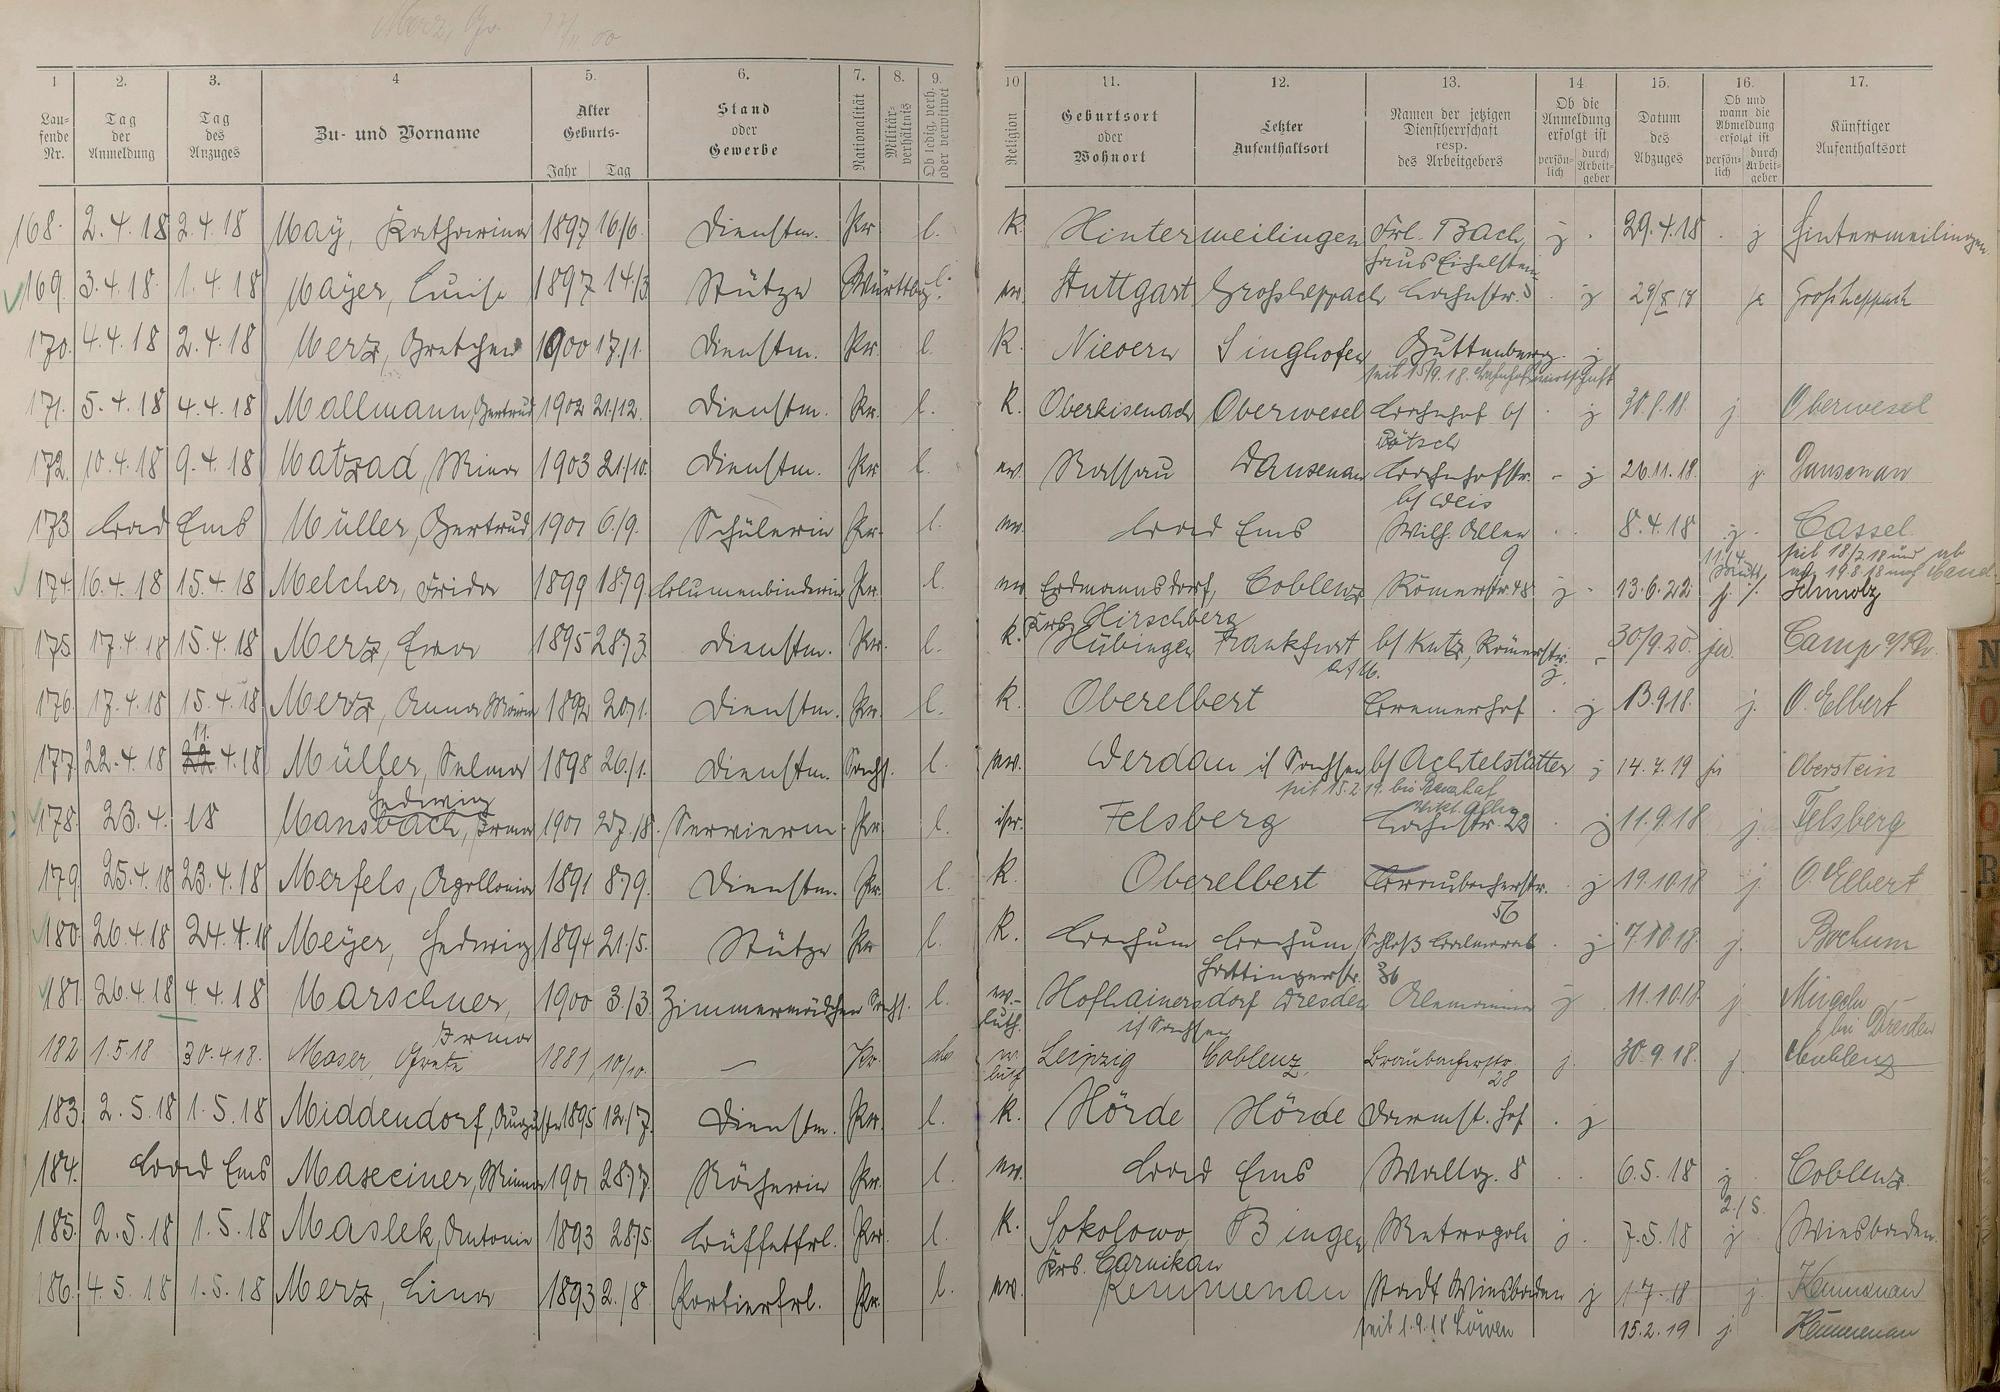 1 2. 3. 4 5. 6. 7. 8. 9. 10 11. 12. 13. 14 15. 16. 17.
Laufende Nr.
Tag der Anmeldung
Tag des Anzuges
Zu- und Vorname
Alter Geburts-
Jahr Tag
Stand oder Gewerbe
Nationalität
Militärverhältnis
Ob ledig, verh. oder verwitwet
Religion
Geburtsort oder Wohnort
Letzter Aufenthaltsort
Namen der jetzigen Dienstherrschaft resp. des Arbeitgebers
Ob die Anmeldung erfolgt ist
persönlich durch Arbeitgeber
Datum des Abzuges
Ob und wann die Abmeldung erfolgt ist
persönlich durch Arbeitgeber
Künftiger Aufenthaltsort
168. 2.4.18 2.4.18 May, Katharina 1897 16/6. Dienstm. Pr l. K. Hinterweilingen Frl. Bach, j. 29.4.18 j Hinterweilingen
Haus Eichelstein
169. 3.4.18. 1.4.18 Mayer, Luise 1897 14/3 Stütze Württbg. l. ev. Stuttgart Grossheppach Bahnstr. 5 j 29/X 18 ja Grossheppach
170. 4.4.18 2.4.18 Merz, Gretchen 1900 17/1. Dienstm. Pr. l. K. Nievern Singhofen Guttenberg. j
seit 15/9.18. Bahnhofswirtschaft
171. 5.4.18 4.4.18 Mallmann, Gertrud 1902 21/12. Dienstm. Pr. l. K. Oberkisenach Oberwesel Bahnhof b/ j 30.8.18. j. Oberwesel
Dötsch
172. 10.4.18 9.4.18 Matzad, Mina 1903 21/10. Dienstm. Pr l. ev. Nassau Dausenau Bahnhofstr. - j 26.11.18. j. Dausenau
b/ Weis
173 Bad Ems Müller, Gertrud 1901 6/9. Schülerin Pr. l. ev. Bad Ems Wilh. Allee 8.4.18 j. Cassel.
9 11/4 seit 18/7 18 und ab
174. 16.4.18 15.4.18 Melcher, Frida 1899 18/9. Blumenbinderin Pr. l. ev Erdmannsdorf, Coblenz Römerstr. 48 j. 13.6.22 j. /. Schmolz
Krs. Hirschberg
175 17.4.18 15.4.18 Merz, Erna 1895 28/3. Dienstm. Pr. l. K. Hübingen Frankfurt b/ Kutz, Römerstr. - 30/9.20. ja. Camp a/Rh.
a/M. j.
176. 17.4.18 15.4.18 Merz, Anna Maria 1892 20/1. Dienstm. Pr. l. K. Oberelbert Bremerhof . j 13.9.18. j. O. Elbert
11.
177 22.4.18 22.4.18 Müller, Selma 1898 26/1. Dienstm. Sachs. l. ev. Werdau i/ Sachsen b/ Achtelstätter j 14.7.19 ja Oberstein
Hedwig seit 15.2.19. bis
178. 23.4.18 Mansbach, Irma 1901 27/8. Servierin Pr l. isr. Felsberg Bahnstr. 22 j 11.9.18 j. Felsberg
179. 25.4.18 23.4.18 Merfels, Apollonia 1891 8/9. Dienstm. Pr. l. K. Oberelbert Braubacherstr. j 19.10.18 j. O. Elbert
56
180. 26.4.18 24.4.18 Meyer, Hedwig 1894 21/5. Stütze Pr l. K. Bochum Bochum Schloß Balmoral . j 7.10.18. j. Bochum
Hattingerstr. 36
181. 26.4.18 4.4.18 Marschner, 1900 3/3 Zimmermädchen Sachs. l. ev.- Hofhainersdorf Dresden Alemannia j 11.10.18. j. Mügeln
Irma luth. i/ Sachsen bei Dresden
182 1.5.18 30.4.18. Moser, Grete 1881 10/10. — Pr. Leipzig Coblenz Braubacherstr. j. 30.9.18. j. Coblenz
28
183. 2.5.18 1.5.18 Middendorf, Auguste 1895 12/7. Dienstm. Pr. l. K. Hörde Hörde Darmst. Hof . j
184. Bad Ems Maseciner, Minna 1901 28/7 Näherin Pr. l. ev. Bad Ems Wallg. 8 6.5.18 j Coblenz.
2./5.
185. 2.5.18 1.5.18 Maslek, Antonie 1893 28/5. Büffetfrl. Pr. l. K. Sokolowo Bingen Metropole j. 7.5.18 j Wiesbaden.
Krs. Carnikau
186. 4.5.18 1.5.18 Merz, Lina 1893 2./8. Portierfrl. Pr. l. ev. Kemmenau Stadt Wiesbaden j 1.7.18 j. Kemmenau
seit 1.9.18 Löwen 15.2.19 j. Kemmenau